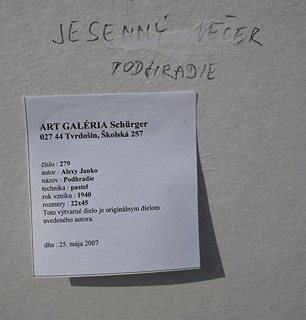 JESENNÝ VEČER
PODHRADIE
ART GALÉRIA Schürger
027 44 Tvrdošín, Školská 257
číslo : 279
autor : Alexy Janko
názov : Podhradie
technika : pastel
rok vzniku : 1940
rozmery : 22x45
Toto výtvarné dielo je originálnym dielom
uvedeného autora.
dňa : 25. mája 2007